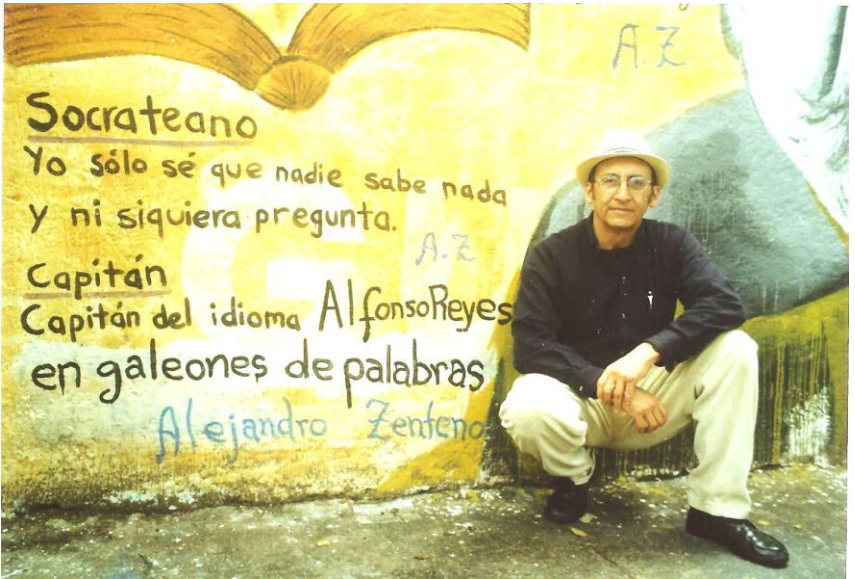 A.Z
Socrateano
Yo sólo sé que nadie sabe nada
y ni siquiera pregunta.
A.Z
Capitán
Capitán del idioma Alfonso Reyes
en galeones de palabras
Alejandro Zenteno